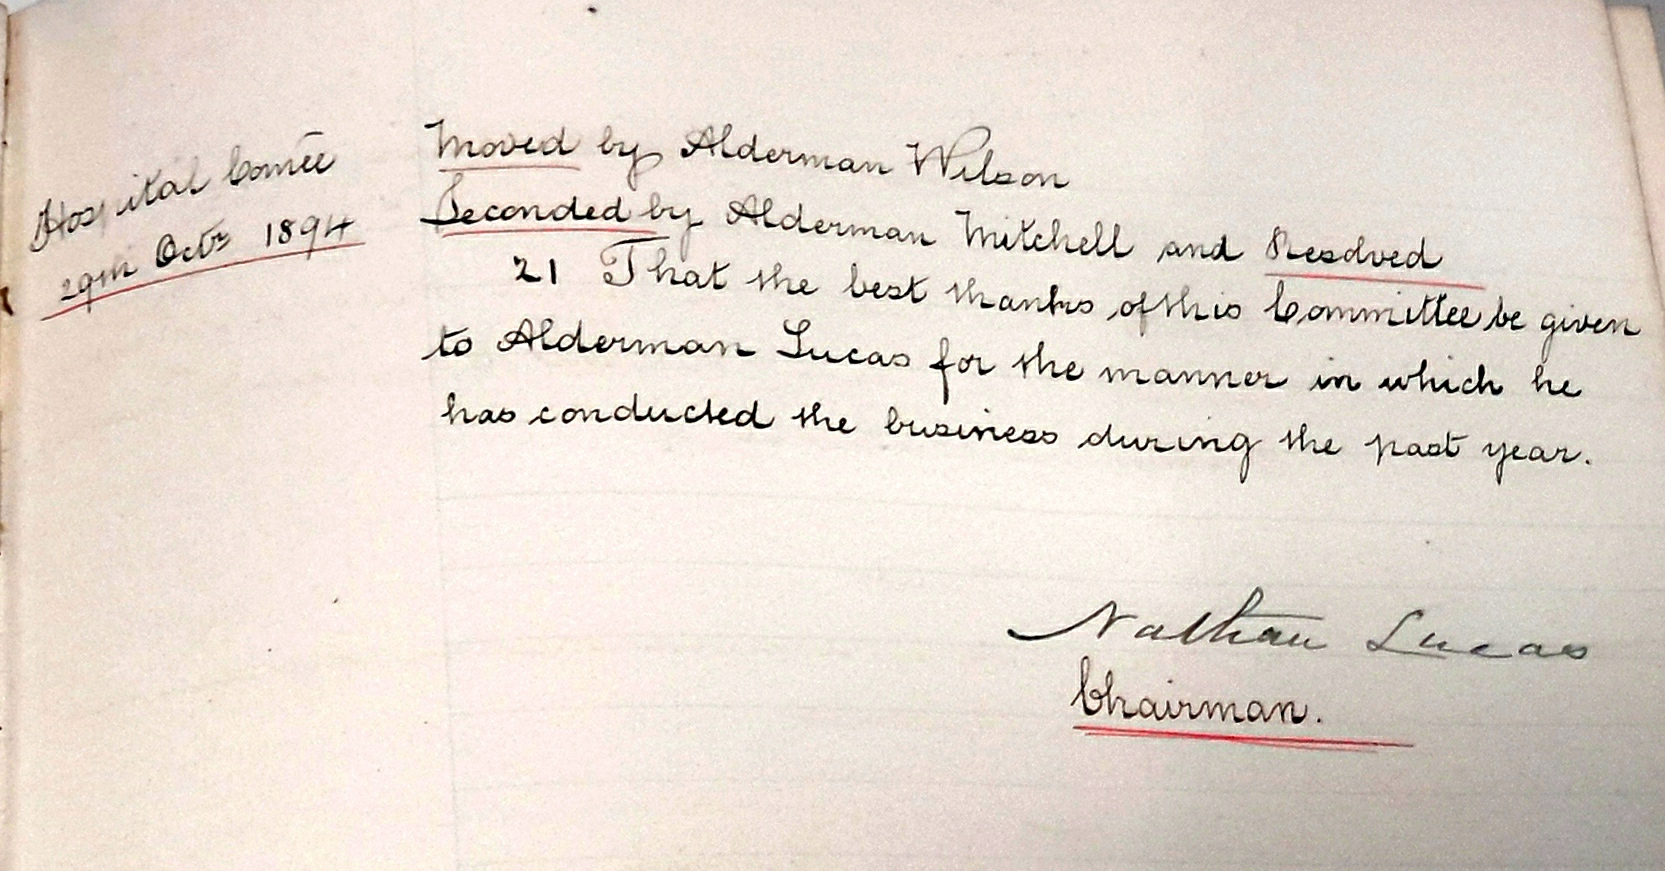 Hospital Comēē
29th Octr 1894
Moved by Alderman Wilson
Seconded by Alderman Mitchell and Resolved
21 That the best thanks of this Committee be given
to Alderman Lucas for the manner in which he
has conducted the business during the past year.
Nathan Lucas
Chairman.